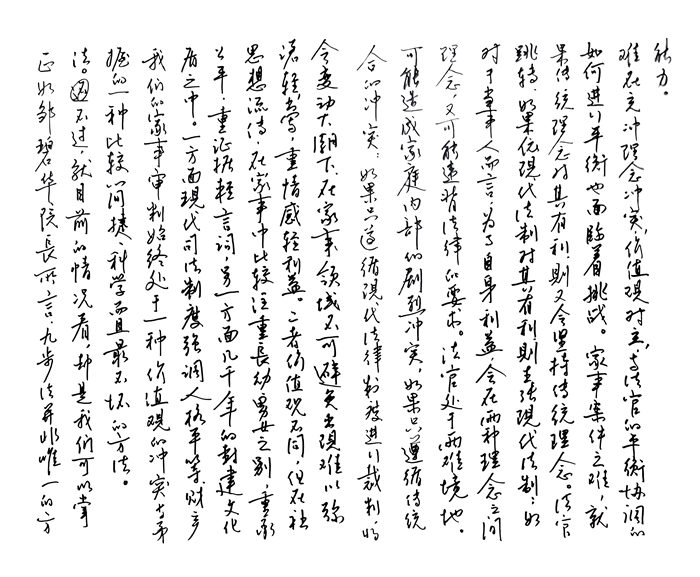 正如邹碧华院长所言,九步法并非唯一的方
法。不过,就目前的情况看,却是我们可以掌
握的一种比较简捷、科学而且最不坏的方法。
我们的家事审判始终处于一种价值观的冲突与矛
盾之中。一方面现代司法制度强调人格平等、财产
公平、重证据轻言词,另一方面几千年的封建文化
思想流传,在家事中比较注重长幼男女之别、重承
诺轻书写、重情感轻利益。二者价值观不同,但在社
会变动大潮下,在家事领域不可避免出现难以弥
合的冲突:如果只遵循现代法律制度进行裁判,将
可能造成家庭内部的剧烈冲突,如果只遵循传统
理念,又可能违背法律的要求。法官处于两难境地。
对于当事人而言,为了自身利益,会在两种理念之间
跳转:如果依现代法制对其有利则主张现代法制;如
果传统理念对其有利,则又会坚持传统理念。法官
如何进行平衡也面临着挑战。家事案件之难,就
难在理念冲突,价值观对立,考法官的平衡协调的
能力。